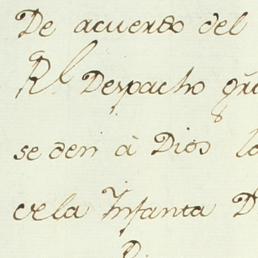 De acuerdo del
Rl. Despacho
se den à Dios
de la Infanta D
D